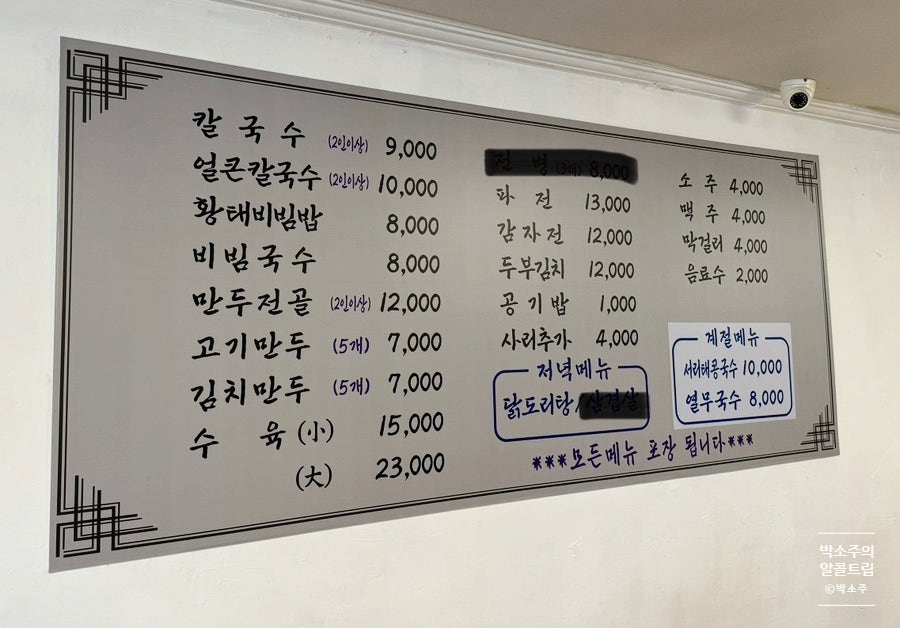 칼국수 (2인이상) 9,000
얼큰칼국수 (2인이상) 10,000
황태비빔밥 8,000
비빔국수 8,000
만두전골 (2인이상) 12,000
고기만두 (5개) 7,000
김치만두 (5개) 7,000
수 육 (小) 15,000
(大) 23,000
전 병 (3개) 8,000
파 전 13,000
감자전 12,000
두부김치 12,000
공기밥 1,000
사리추가 4,000
저녁메뉴
닭도리탕, 삼겹살
소주 4,000
맥주 4,000
막걸리 4,000
음료수 2,000
계절메뉴
서리태콩국수 10,000
열무국수 8,000
***모든메뉴 포장 됩니다***
박소주의
알콜트립
©박소주